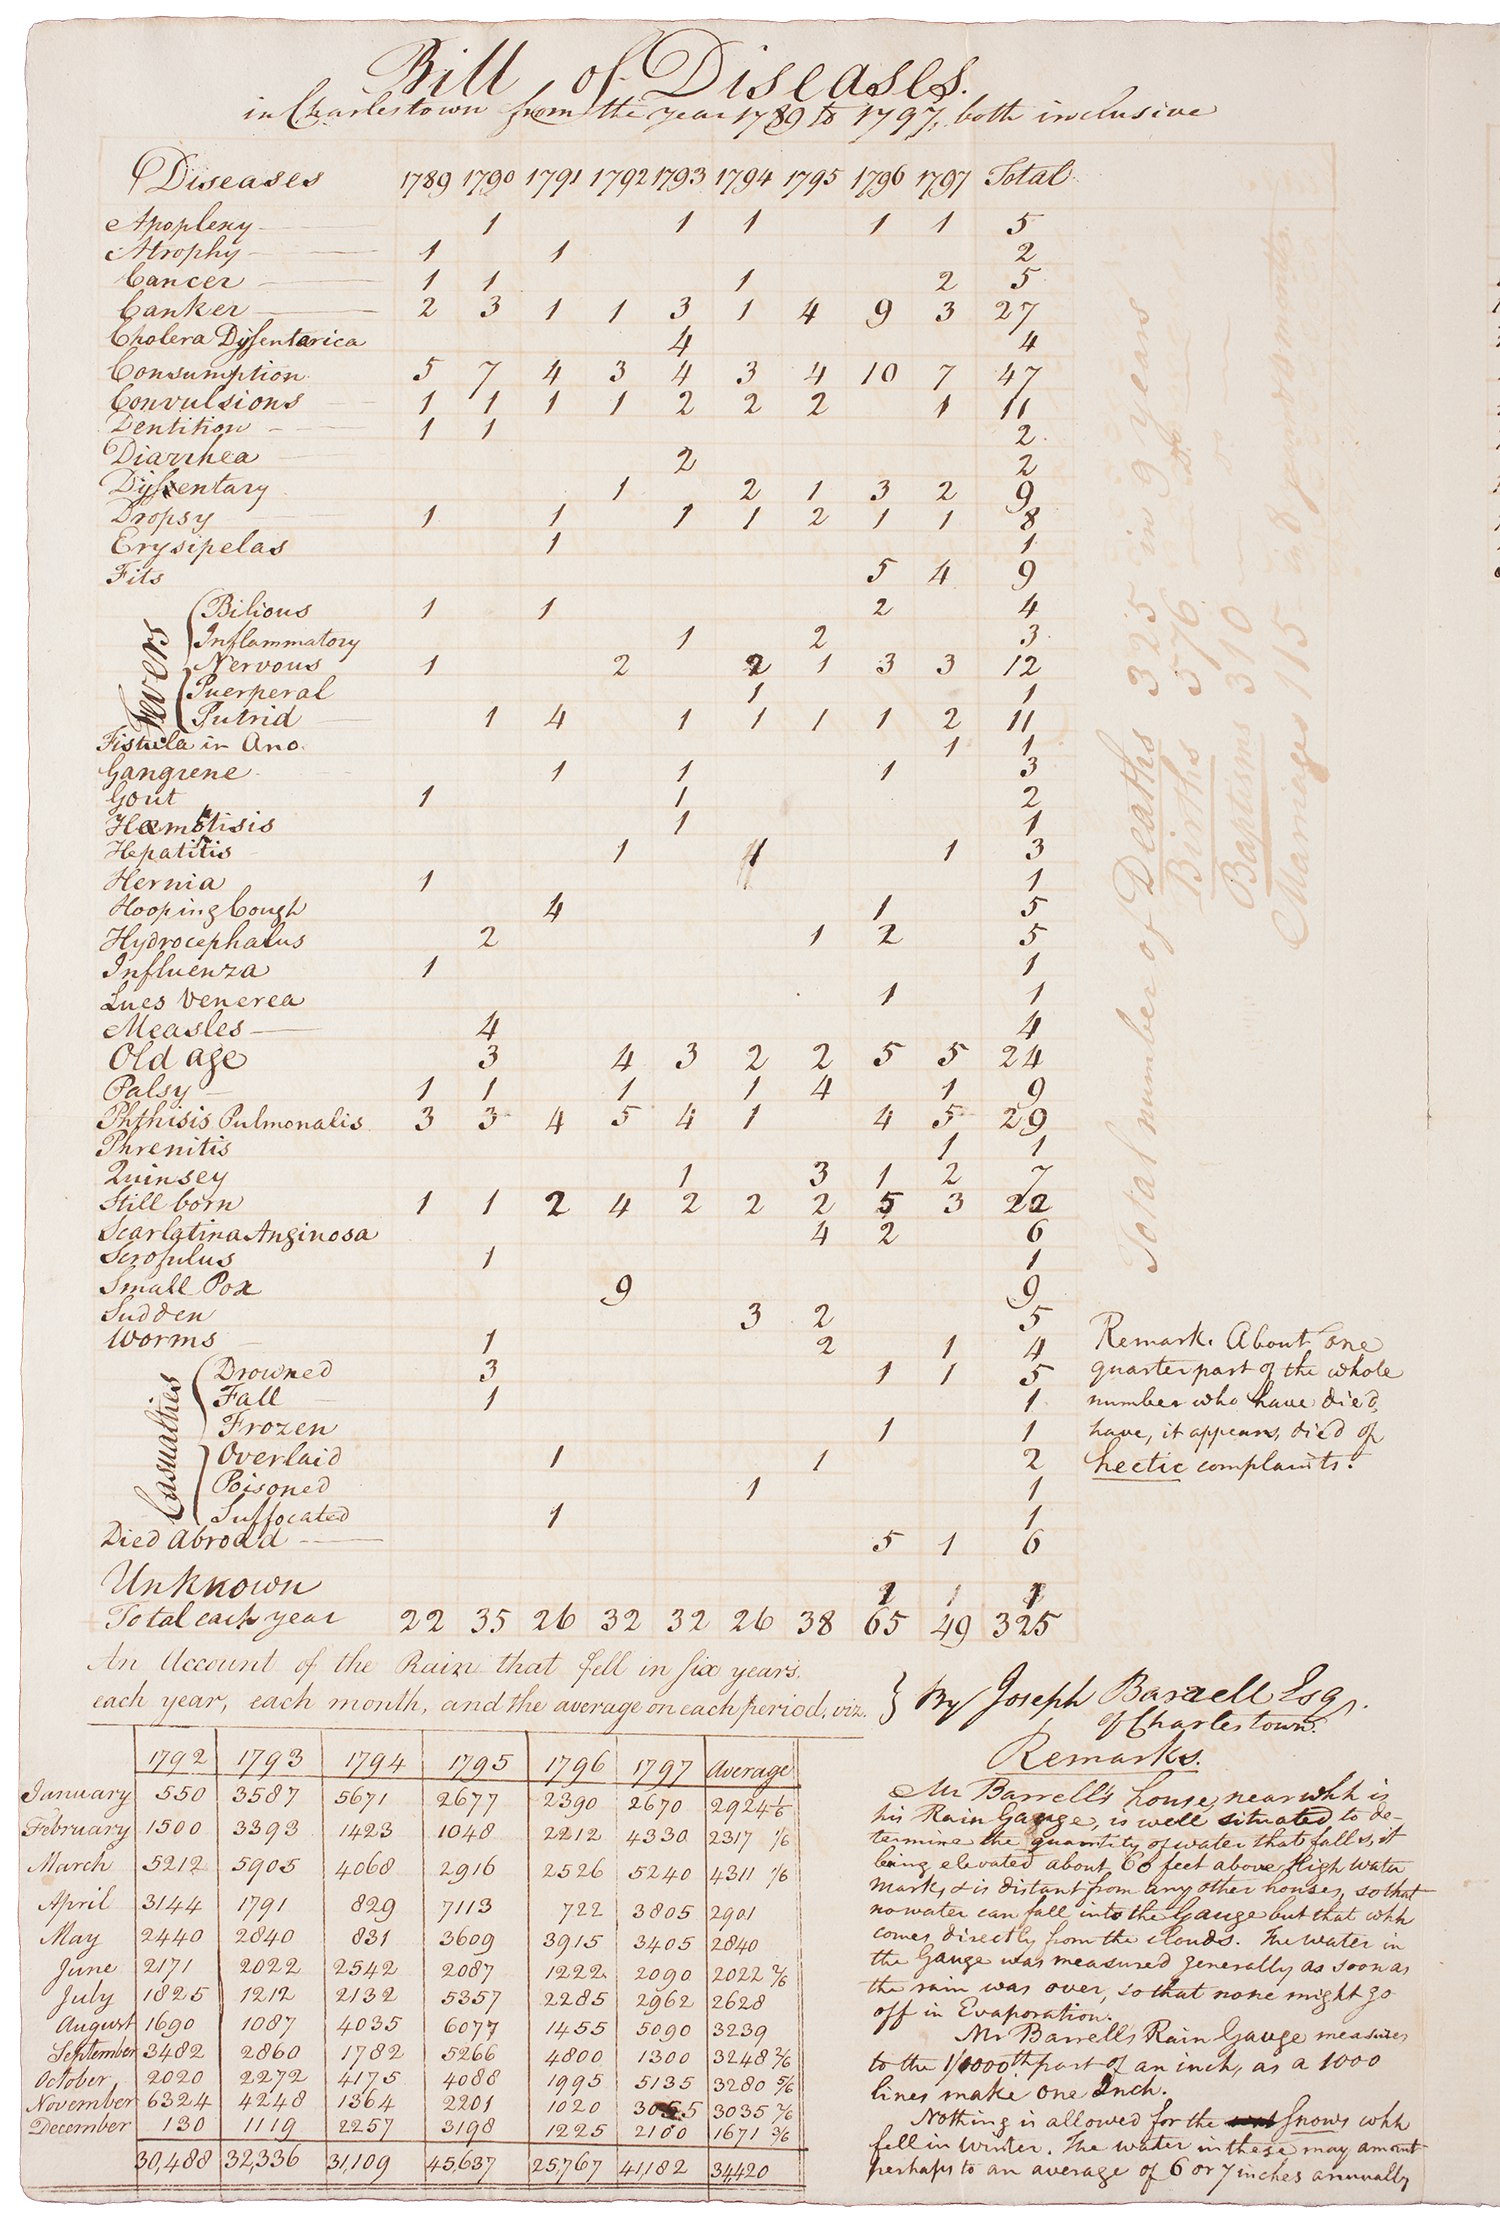 Bill of Diseases.
in Charlestown from the year 1789 to 1797, both inclusive
Diseases 1789 1790 1791 1792 1793 1794 1795 1796 1797 Total
Apoplexy 1 1 1 1 1 5
Atrophy 1 1 2
Cancer 1 1 1 2 5
Canker 2 3 1 1 3 1 4 9 3 27
Cholera Dyssentarica 4 4
Consumption 5 7 4 3 4 3 4 10 7 47
Convulsions 1 1 1 1 2 2 2 1 11
Dentition 1 1 2
Diarrhea 2 2
Dyssentary 1 2 1 3 2 9
Dropsy 1 1 1 1 2 1 1 8
Erysipelas 1 1
Fits 5 4 9
Fevers
Bilious 1 1 2 4
Inflammatory 1 2 3
Nervous 1 2 2 1 3 3 12
Puerperal 1 1
Putrid 1 4 1 1 1 1 2 11
Fistula in Ano. 1 1
Gangrene 1 1 1 3
Gout 1 1 2
Hæmoptisis 1 1
Hepatitis 1 1 1 3
Hernia 1 1
Hooping Cough 4 1 5
Hydrocephalus 2 1 2 5
Influenza 1 1
Lues Venerea 1 1
Measles 4 4
Old age 3 4 3 2 2 5 5 24
Palsy 1 1 1 1 4 1 9
Phthisis Pulmonalis 3 3 4 5 4 1 4 5 29
Phrenitis 1 1
Quinsey 1 3 1 2 7
Still born 1 1 2 4 2 2 2 5 3 22
Scarlatina Anginosa 4 2 6
Scrofulus 1 1
Small Pox 9 9
Sudden 3 2 5
Worms 1 2 1 4
Casualties
Drowned 3 1 1 5
Fall 1 1
Frozen 1 1
Overlaid 1 1 2
Poisoned 1 1
Suffocated 1 1
Died Abroad 5 1 6
Unknown 1 1
Total each year 22 35 26 32 32 26 38 65 49 325
Total number of Deaths 325 in 9 years
Births 576 — Do —
Baptisms 310 — Do —
Marriages 115 in 8 years
Remark. About one
quarter part of the whole
number who have died,
have, it appears, died of
hectic complaints.
An Account of the Rain that fell in six years,
each year, each month, and the average on each period, viz.
} By Joseph Barrell Esqr.
of Charlestown.
1792 1793 1794 1795 1796 1797 Average
January 550 3587 5671 2677 2390 2670 2924 1/6
February 1500 3393 1423 1048 2212 4330 2317 4/6
March 5212 5905 4068 2916 2526 5240 4311 1/6
April 3144 1791 829 7113 722 3805 2901
May 2440 2840 831 3609 3915 3405 2840
June 2171 2022 2542 2087 1222 2090 2022 2/6
July 1825 1212 2132 5357 2285 2962 2628
August 1690 1087 4035 6077 1455 5090 3239
September 3482 2860 1782 5266 4800 1300 3248 2/6
October 2020 2272 4175 4088 1995 5135 3280 5/6
November 6324 4248 1364 2201 1020 3055 3035 2/6
December 130 1119 2257 3198 1225 2100 1671 3/6
30,488 32,336 31,109 45,637 25,767 41,182 34,420
Remarks.
Mr Barrell's house, near whh is
his Rain Gauge, is well situated to de-
termine the quantity of water that falls, it
being elevated about 60 feet above High water
mark, & is distant from any other houses, so that
no water can fall into the Gauge but that whh
comes directly from the clouds. The water in
the Gauge was measured generally as soon as
the rain was over, so that none might go
off in Evaporation.
Mr Barrells Rain Gauge measures
to the 1/1000th part of an inch, as a 1000
lines make one Inch.
Nothing is allowed for the snows whh
fell in winter. The water in these may amount
perhaps to an average of 6 or 7 inches annually